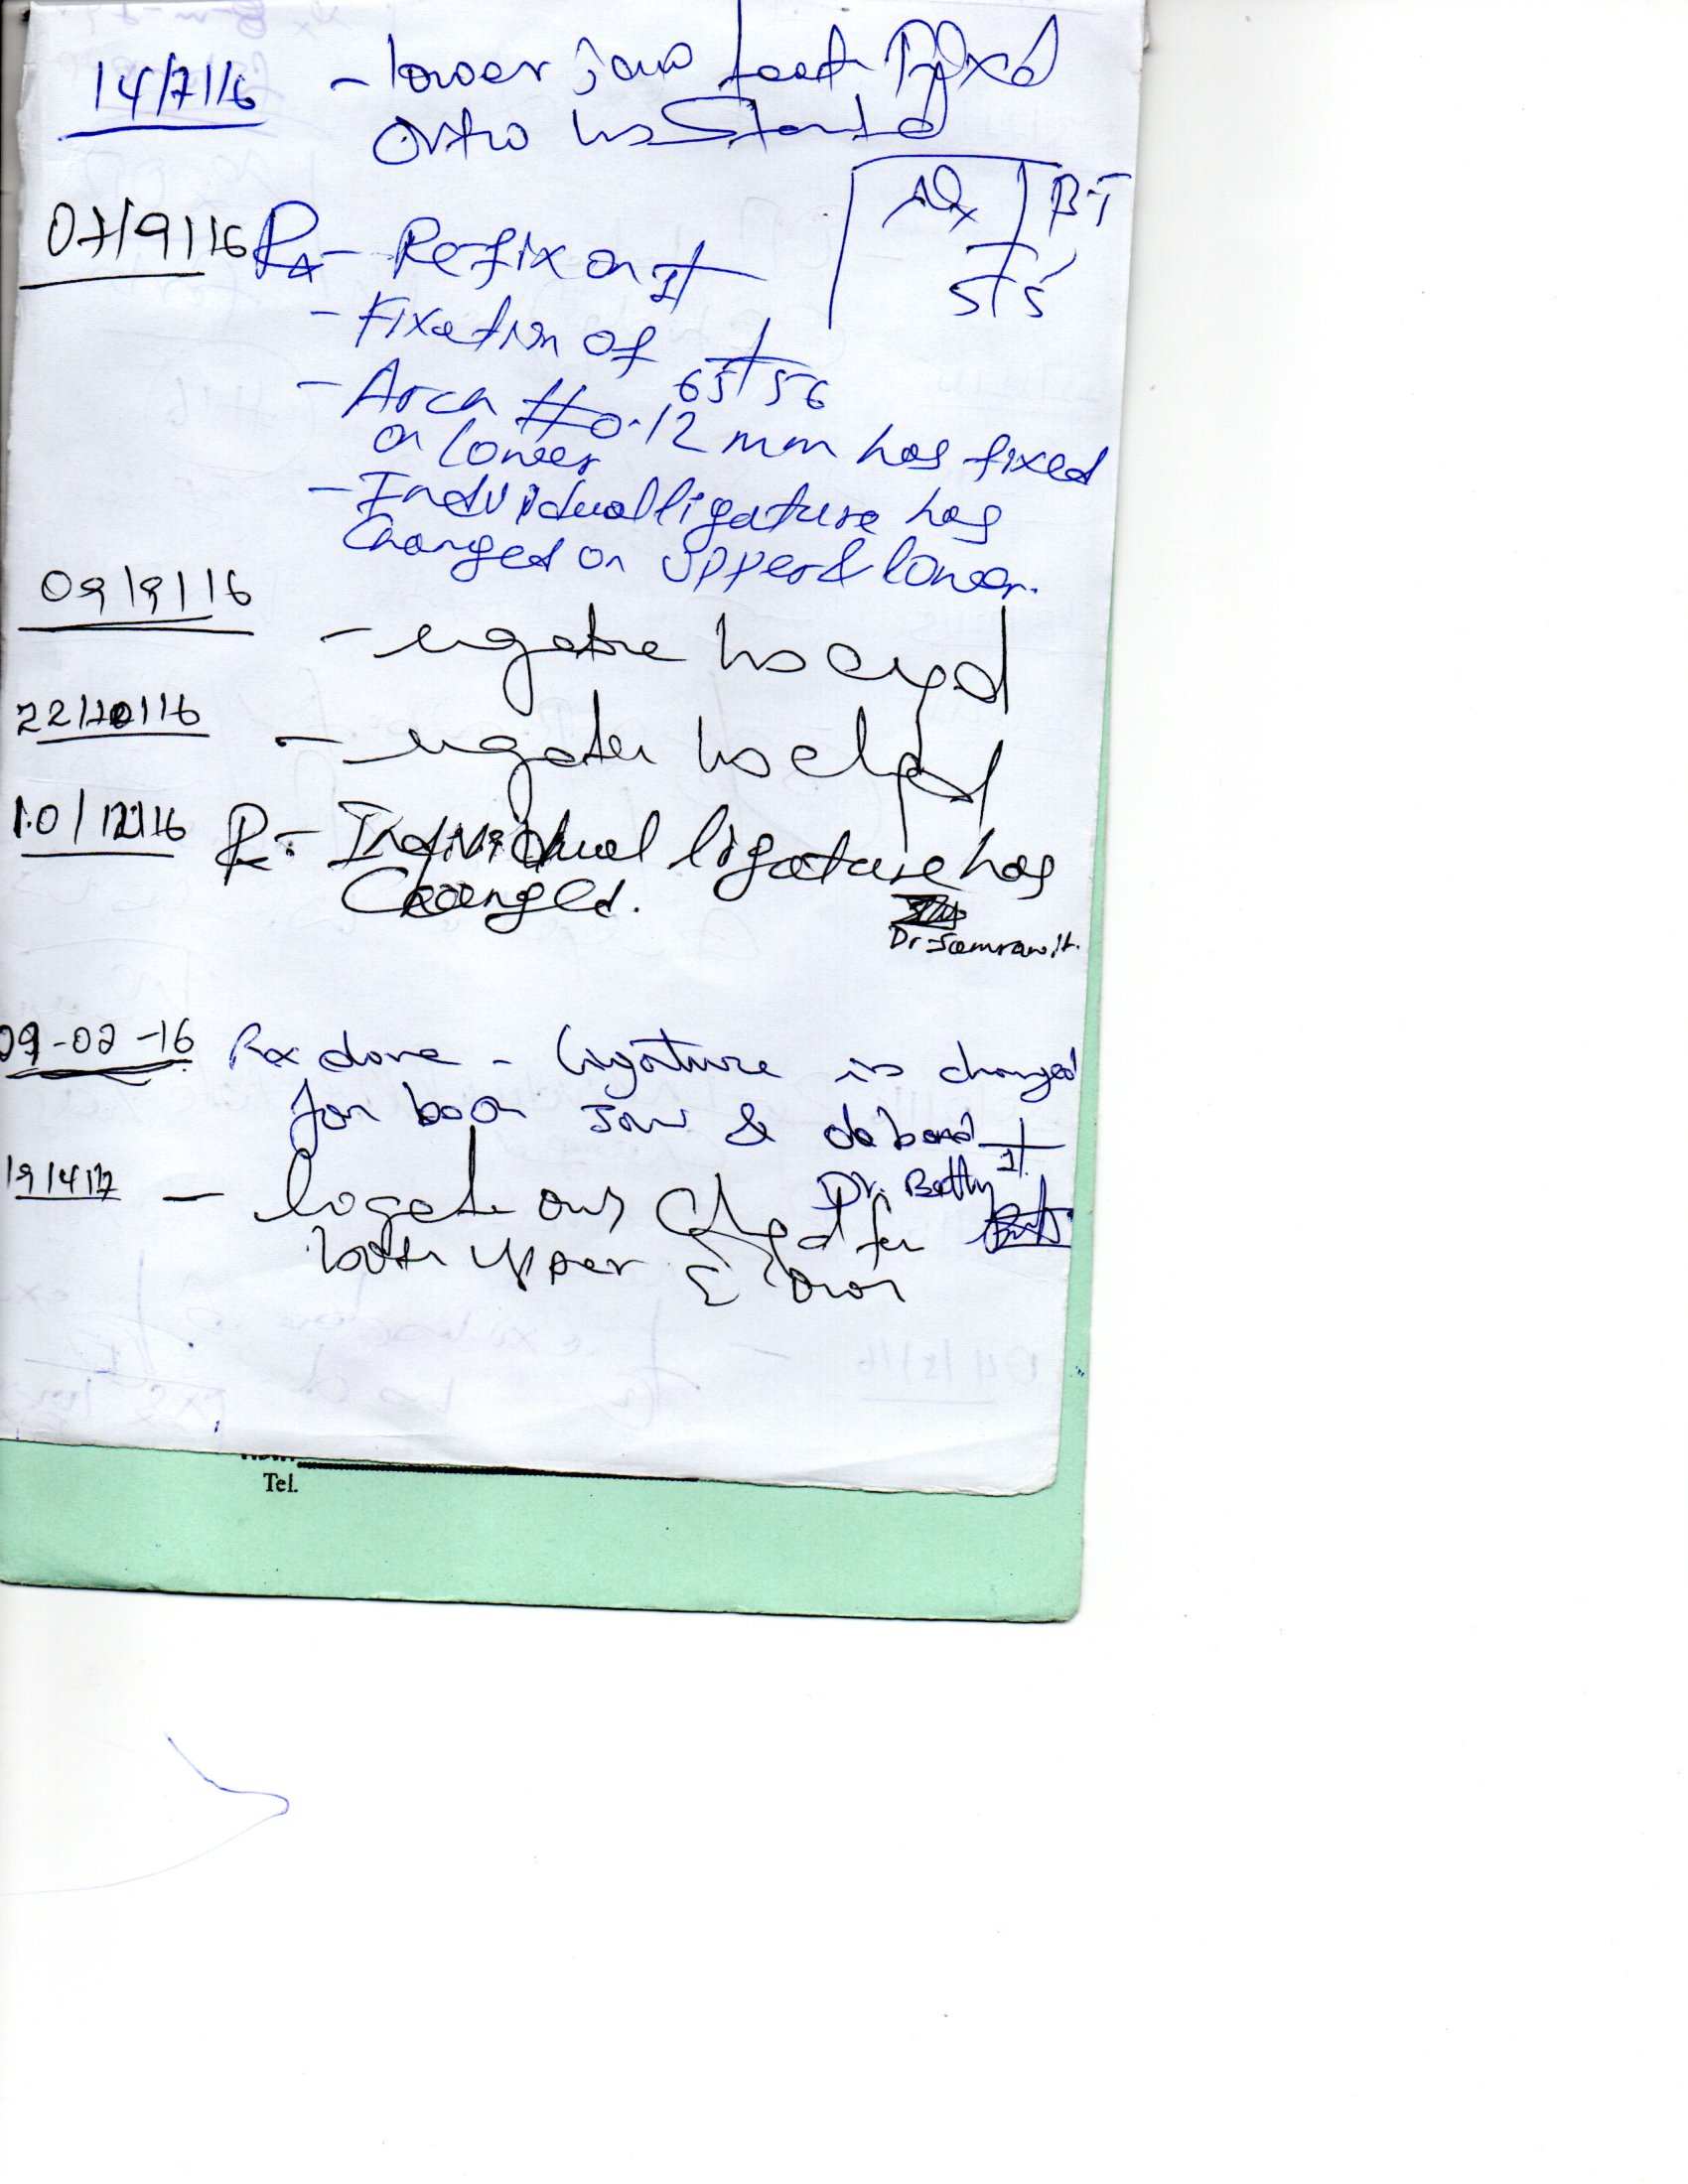 14/7/16 - lower jaw teeth Fixed
Ortho has Started
Nx BT
5 5
07/9/16 Rx - Refix on 1
- Fixation of 65 56
- Arch #0.12 mm has fixed
on lower
- Individual ligature has
Changed on upper & lower.
09/9/16
- ligature has
22/10/16
- has
10/12/16 Rx - Individual ligature has
Changed.
Dr. Samrawit.
09-02-16 Rx done - Ligature is changed
for both Jaw & debond 1
Dr. Betty
19/4/17 - for
both upper & lower
Tel.